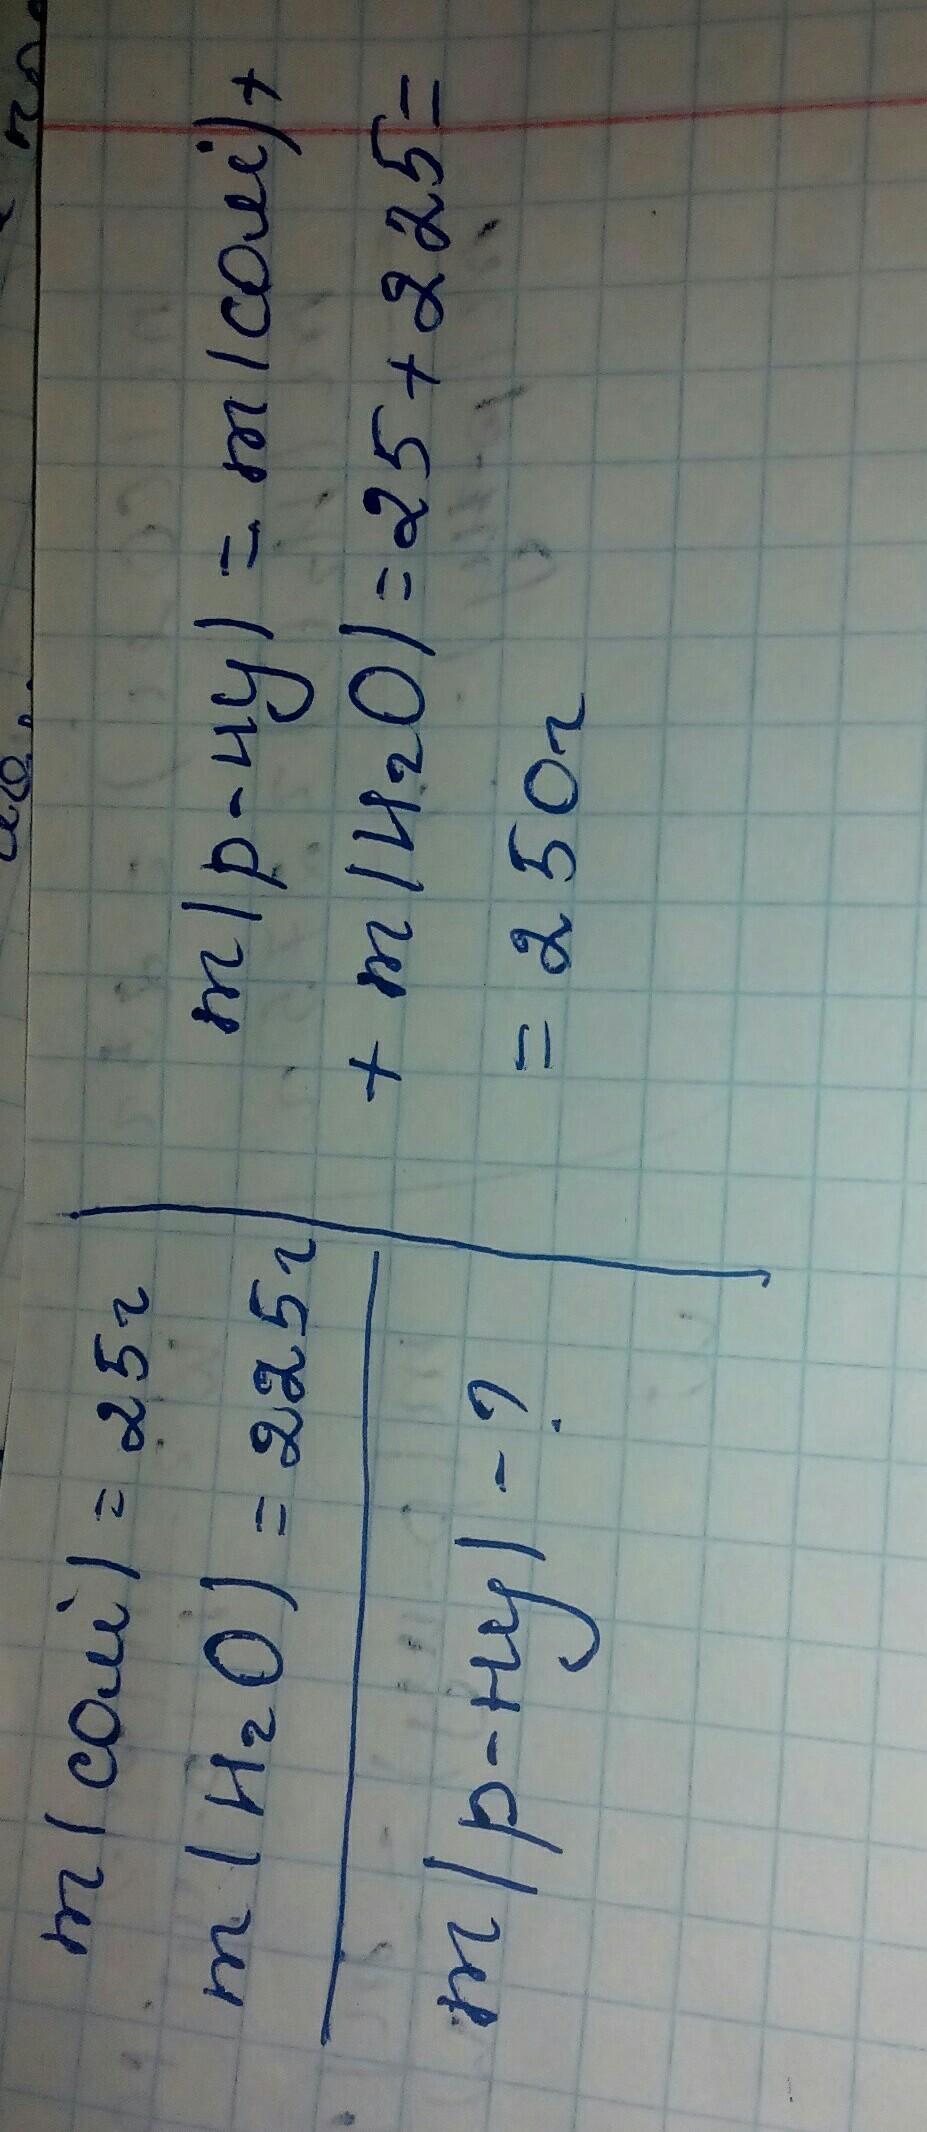 m(солі) = 25г
m(H₂O) = 225г
m(р-ну) - ?
m(р-ну) = m(солі) +
+ m(H₂O) = 25 + 225 =
= 250г